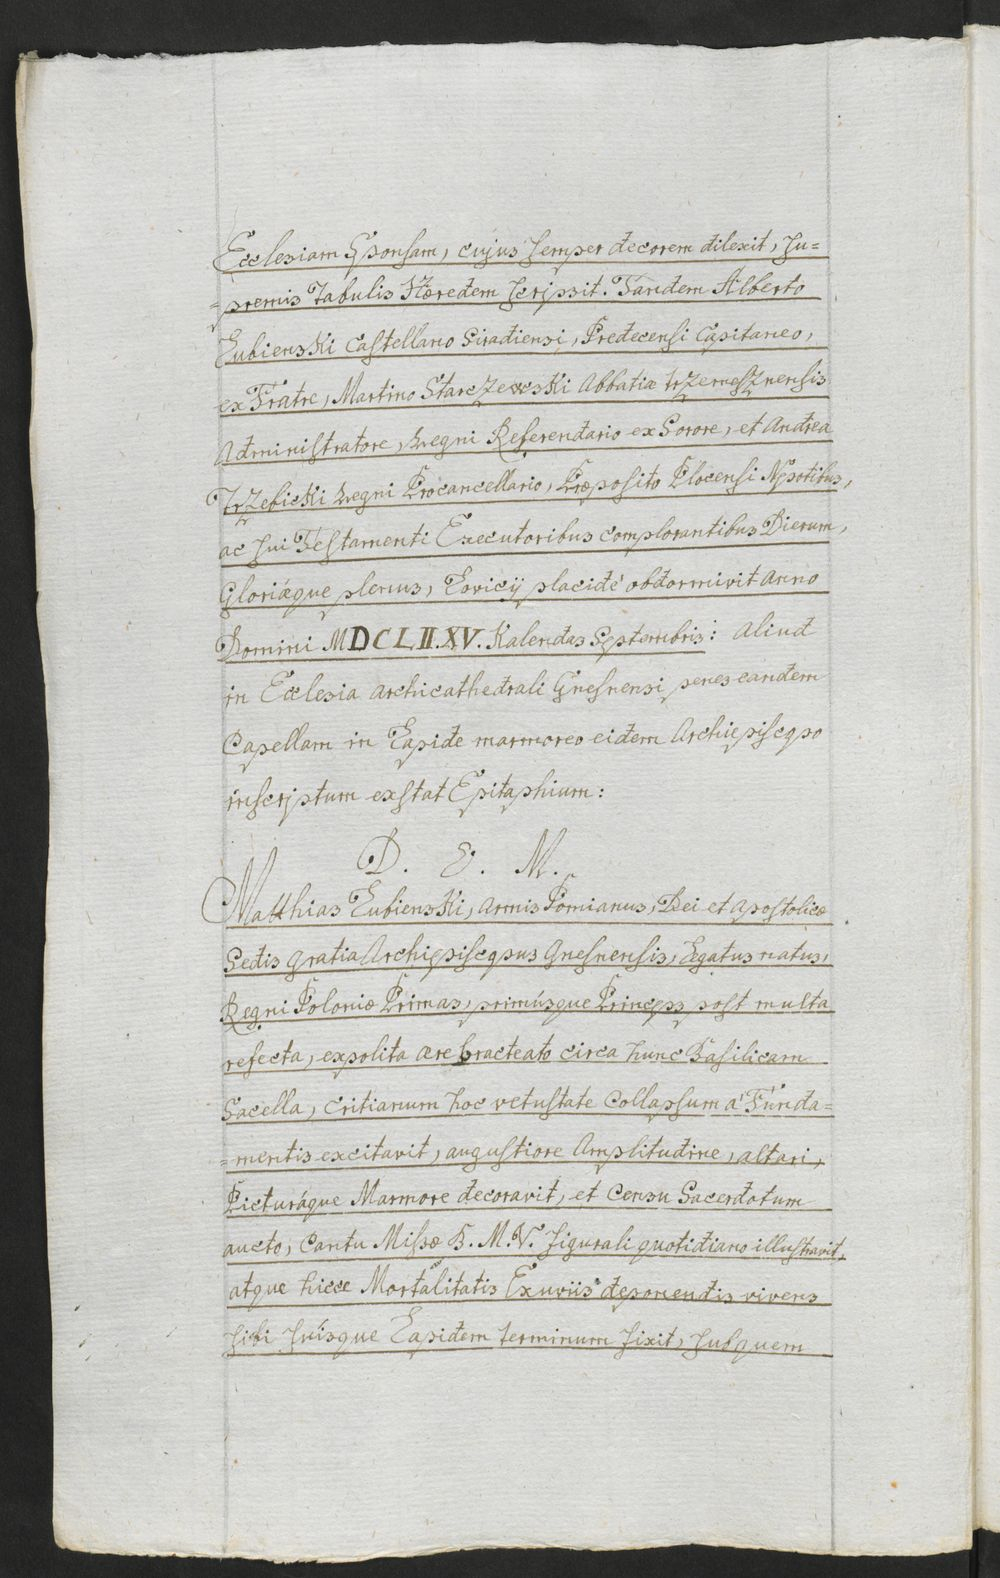 Ecclesiam Sponsam, cujus semper decorem dilexit, Su=
=premis Tabulis Hæredem scripsit. Tandem Alberto
Lubienski Castellano Siradiensi, Predecensi Capitaneo,
ex Fratre, Martino Starczewski Abbatiæ Trzemesznensis
Administratore, Regni Referendario ex Sorore, et Andrea
Trzebicki Regni Procancellario, Præposito Plocensi Nepotibus,
ac sui Testamenti Executoribus complorantibus Dierum,
Gloriáque plenus, Lovicÿ placidè obdormivit Anno
Domini MDCLII.XV. Kalendas Septembris: aliud
in Ecclesia Archicathedrali Gnesnensi penes eandem
Capellam in Lapide marmoreo eidem Archiepiscopo
inscriptum exstat Epitaphium:
D. O. M.
Matthias Lubienski, armis Pomianus, Dei et Apostolicæ
Sedis gratia Archiepiscopus Gnesnensis, Legatus natus,
Regni Poloniæ Primas, primúsque Princeps, post multa
refecta, expolita ære bracteato circa hunc Basilicam
Sacella, critianum hoc vetustate Collapsum à Funda=
=mentis excitavit, augustiore Amplitudine, altari,
Picturáque Marmore decoravit, et Censu Sacerdotum
aucto, Cantu Missæ B. M. V. figurali quotidiano illustravit,
atque hicce Mortalitatis Exuviis deponendis vivens
sibi suísque Lapidem terminum fixit, sub quem